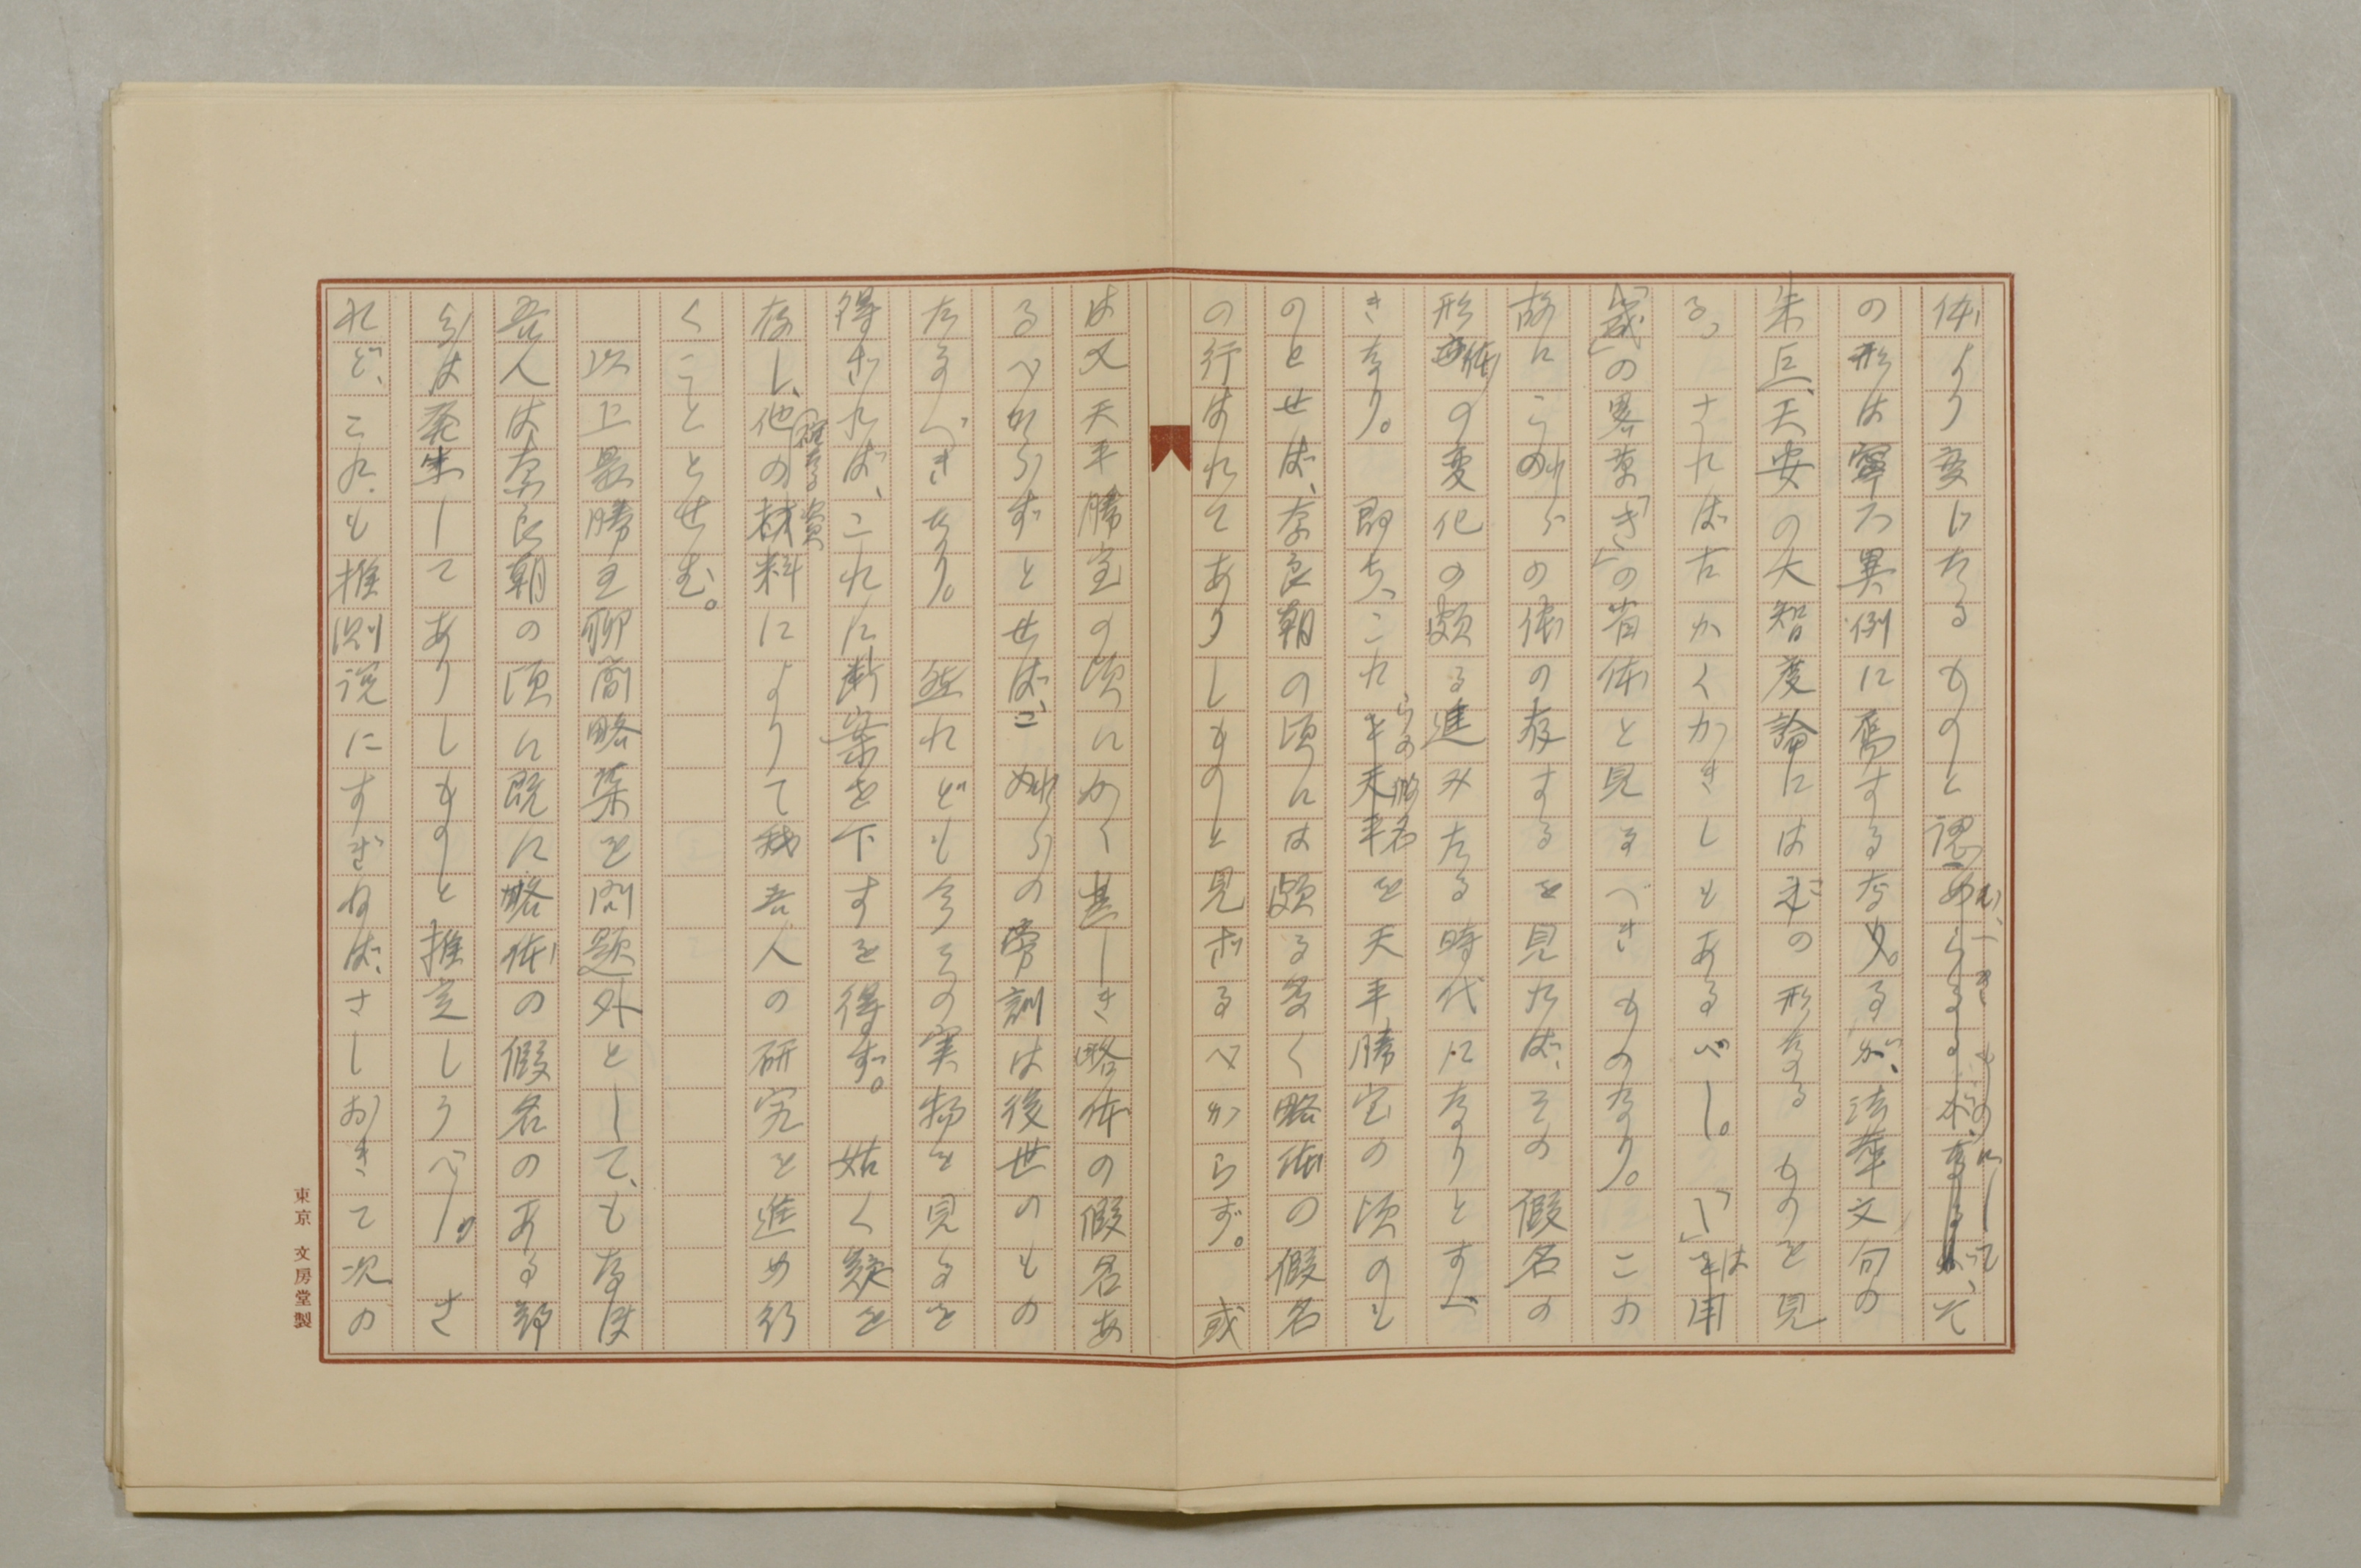 体より変じたるものと認む、一あきものにして、そ
の形は寧ろ異例に属するなるが、法華文句の
朱点、天安の大智度論にはの形なるものを見
る。されば古かくかきしもあるべし。「」は用
「崴」の畧草「ぎ」の省体と見るべきものなり。この
故にこれらの体の存するを見れば、その假名の
形体の変化の頗る進みたる時代になりとすべ
きなり。即ち、これらの假名を天平勝宝の頃のも
のとせば、奈良朝の頃には頗る多く略体の假名
の行はれてありしものと見ざるべからず。或
は又天平勝宝の頃にかく甚しき略体の假名あ
るべからずとせば、これらの旁訓は後世のもの
たるべきなり。然れども今その実物を見るを
得ざれば、これに断案を下すを得ず。姑く疑を
存し、他の確なる資料によりて我吾人の研究を進め行
くことゝせむ。
以上最勝王聊簡略策を問題外として、もなほ
吾人は奈良朝の頃に既に略体の假名のある部
分は発生してありしものと推定しうべし。さ
れど、これも推測説にすぎねば、さしおきて次の
東京 文房堂製